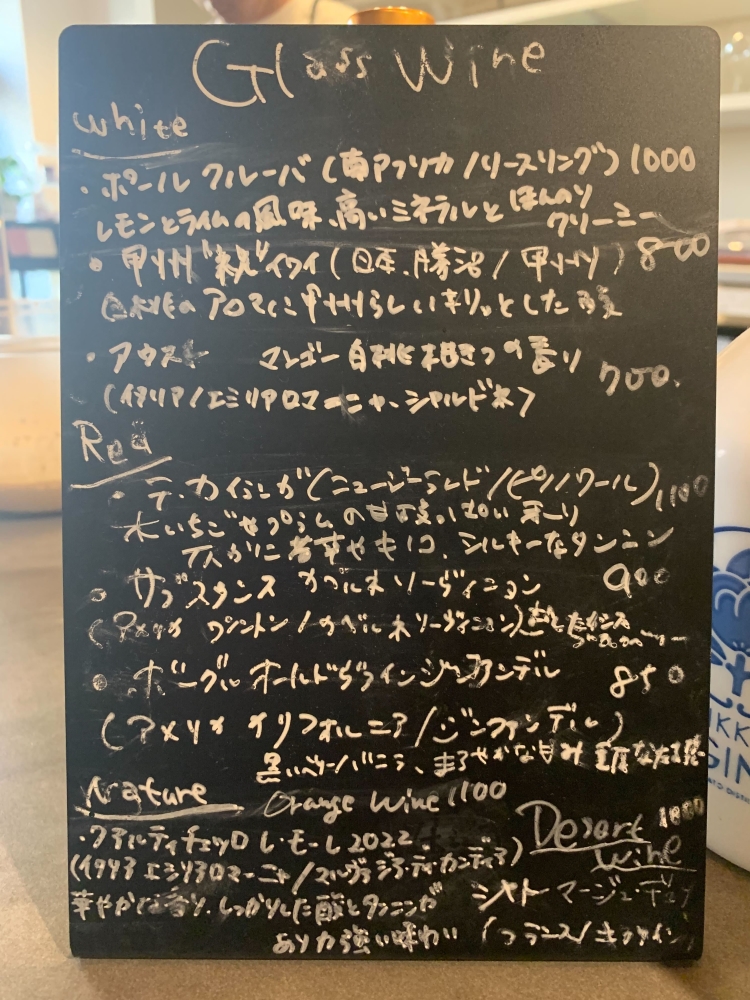 Glass Wine
white
・ポール クルーバ (南アフリカ / リースリング) 1000
レモンとライムの風味、高いミネラルと ほんのり
クリーミー
・甲州 "祝" イワイ (日本、勝沼 / 甲州) 800
白桃のアロマに甲州らしいキリッとした酸
・アウスト マンゴー 白桃 の香り 700.
(イタリア / エミリアロマーニャ、シャルドネ)
Red
・テ・カイランガ (ニュージーランド / ピノノワール) 1100
木いちごやプラムの甘酸っぱい香り
シルキーなタンニン
・サブスタンス カベルネソーヴィニョン 900
(アメリカ ワシントン / カベルネソーヴィニョン)
・ボーグル オールドヴァイン ジンファンデル 850
(アメリカ カリフォルニア / ジンファンデル)
黒いベリー バニラ、まろやかな甘み
Nature Orange Wine 1100
・フォルティチェッロ レ・モーレ 2022.
(イタリア エミリアロマーニャ / マルヴァジア・ディ・カンディア)
華やかな香り、しっかりした酸とタンニンが
あり力強い味わい
Desert 1000
Wine
シャトー マージュ・デュ
(フランス /